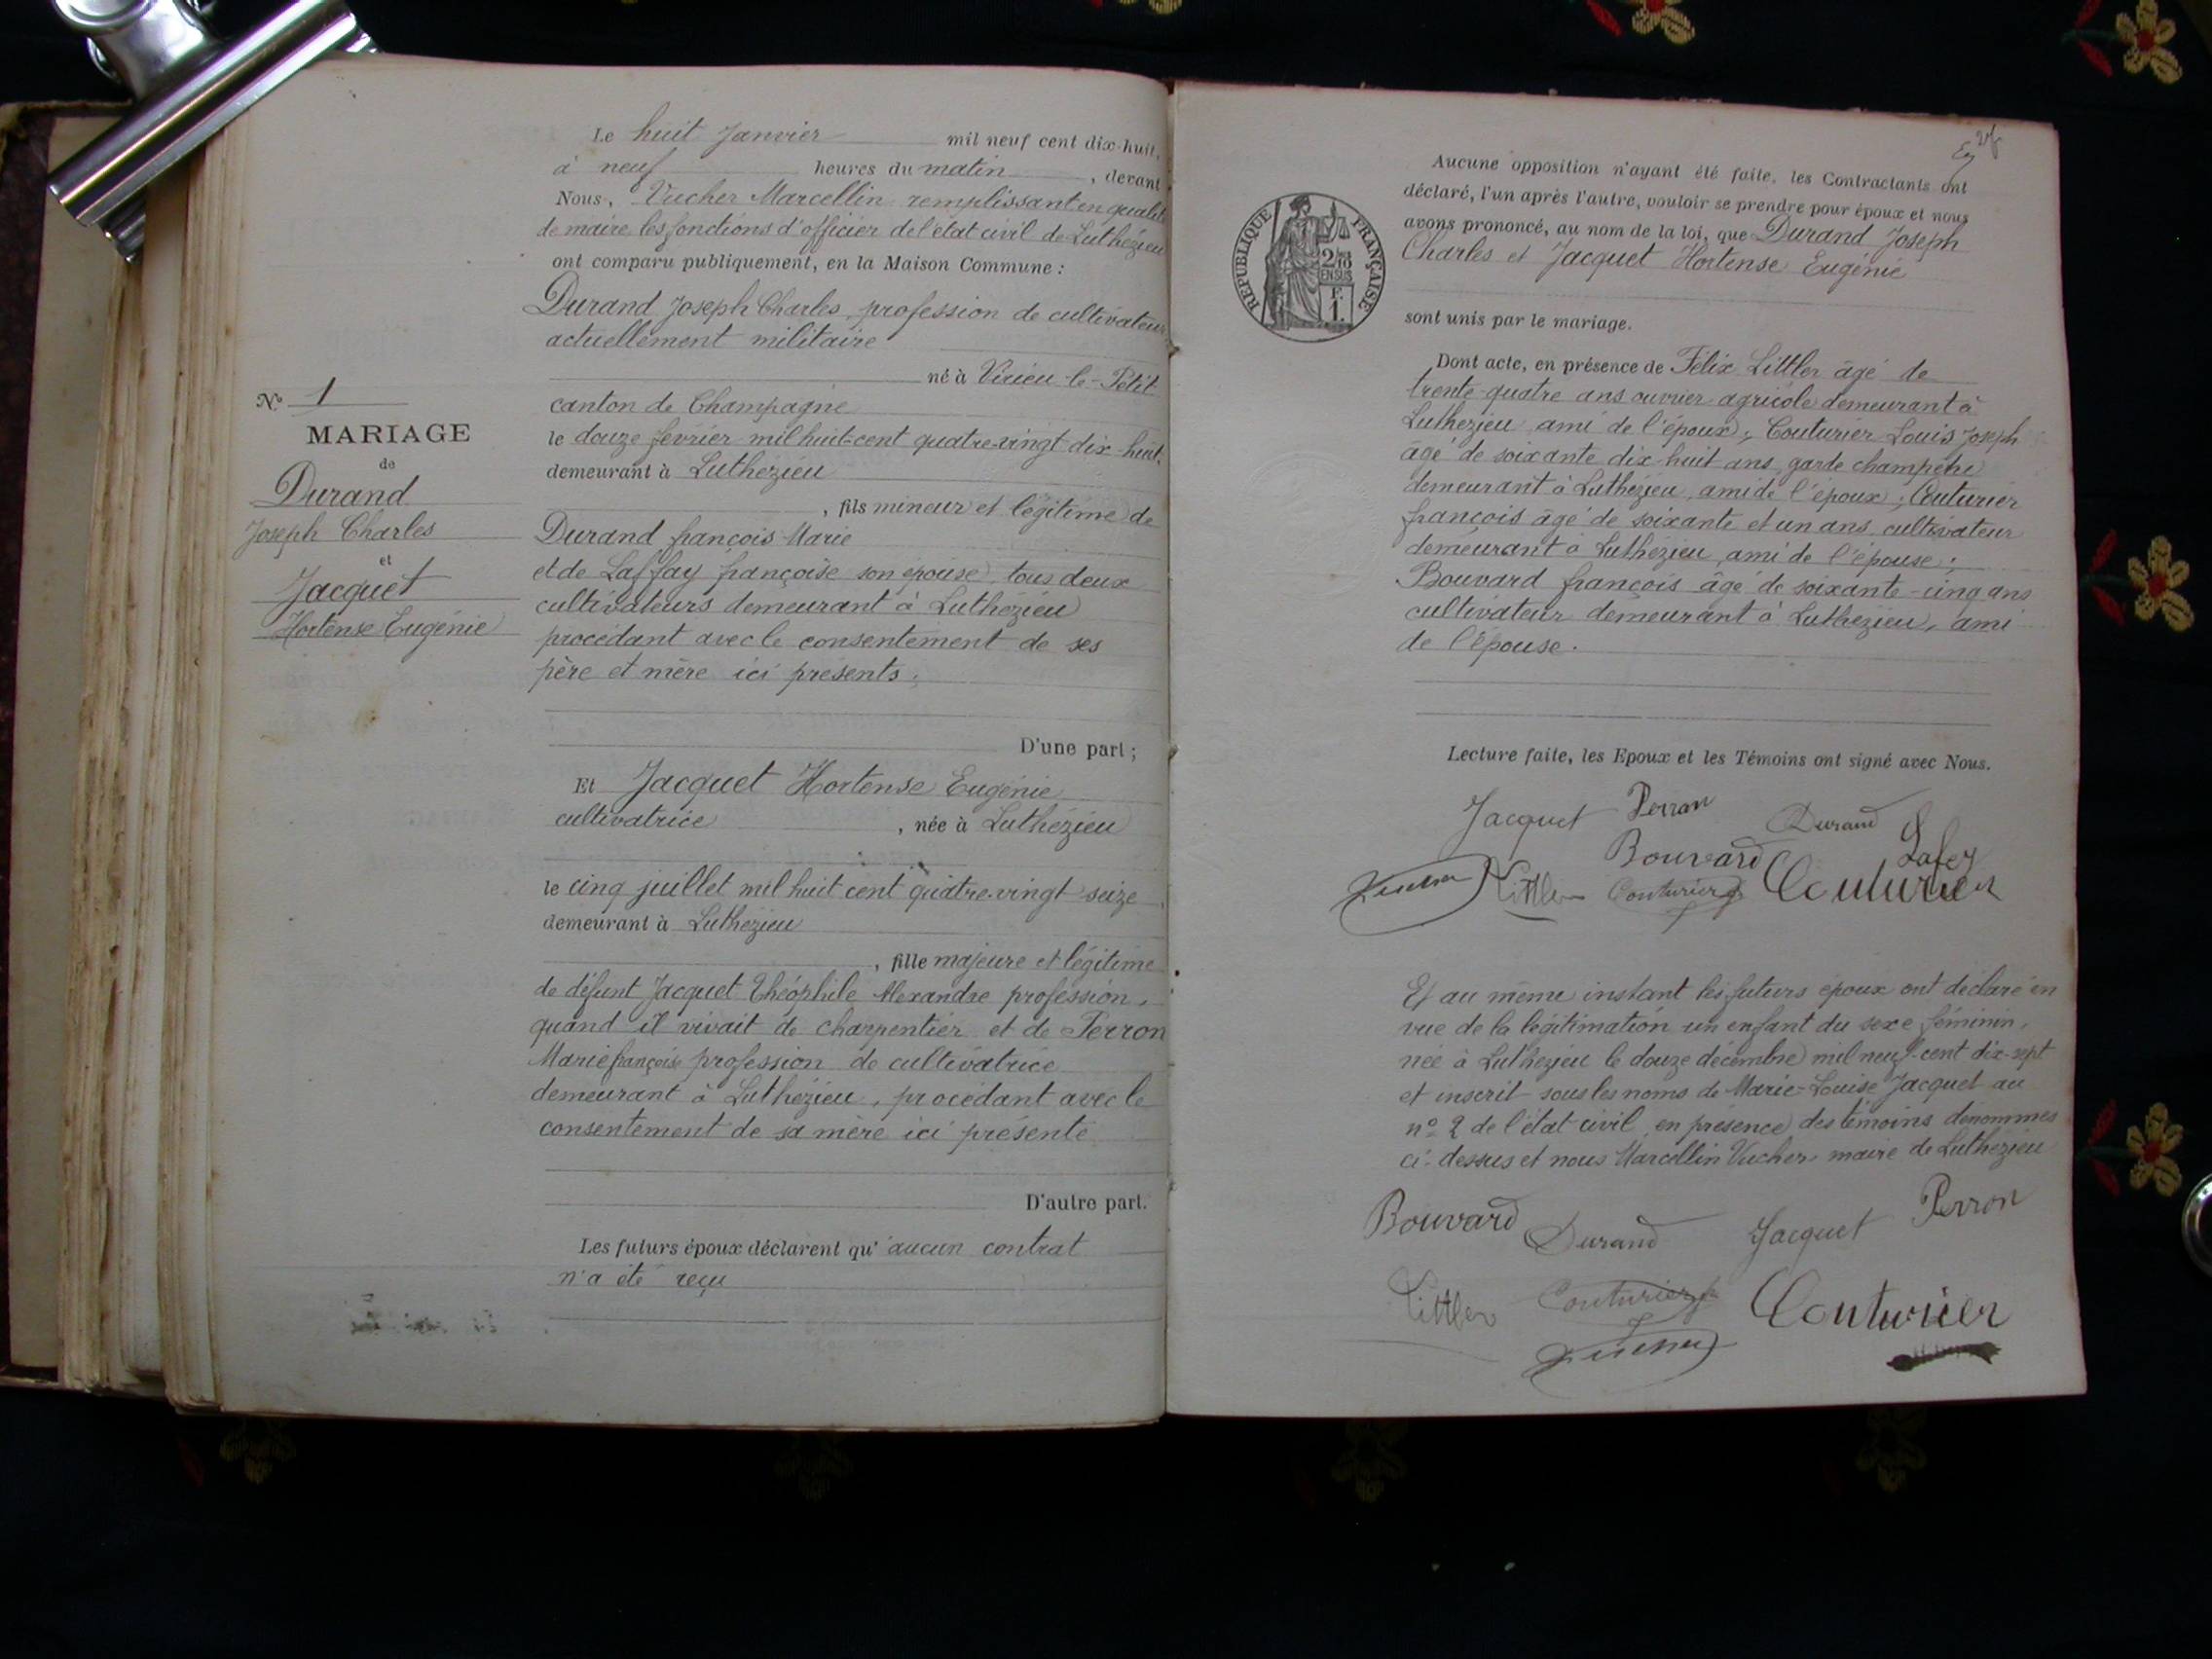 Le huit Janvier mil neuf cent dix-huit,
à neuf heures du matin, devant
Nous, Vucher Marcellin remplissant en qualité
de maire les fonctions d'officier de l'état civil de Luthézieu
ont comparu publiquement, en la Maison Commune :
Durand Joseph Charles, profession de cultivateur
actuellement militaire
né à Virieu-le-Petit
canton de Champagne
le douze février mil huit-cent quatre-vingt dix-huit,
demeurant à Luthézieu
, fils mineur et légitime de
Durand françois Marie
et de Laffay françoise son épouse, tous deux
cultivateurs demeurant à Luthézieu
procédant avec le consentement de ses
père et mère ici présents.
D'une part ;
Et Jacquet Hortense Eugénie
cultivatrice, née à Luthézieu
le cinq juillet mil huit cent quatre-vingt seize
demeurant à Luthézieu
, fille majeure et légitime
de défunt Jacquet Théophile Alexandre profession,
quand il vivait de charpentier et de Perron
Marie françoise profession de cultivatrice
demeurant à Luthézieu, procédant avec le
consentement de sa mère ici présente
D'autre part.
Les futurs époux déclarent qu'aucun contrat
n'a été reçu
N° 1
MARIAGE
de
Durand
Joseph Charles
et
Jacquet
Hortense Eugénie
Aucune opposition n'ayant été faite, les Contractants ont
déclaré, l'un après l'autre, vouloir se prendre pour époux et nous
avons prononcé, au nom de la loi, que Durand Joseph
Charles et Jacquet Hortense Eugénie
sont unis par le mariage.
RÉPUBLIQUE FRANÇAISE
2/10
EN SUS
F.
1.
Dont acte, en présence de Félix Littler âgé de
trente-quatre ans ouvrier agricole demeurant à
Luthézieu ami de l'époux ; Couturier Louis Joseph
âgé de soixante dix-huit ans, garde champêtre
demeurant à Luthézieu, ami de l'époux ; Couturier
françois âgé de soixante et un ans, cultivateur
demeurant à Luthézieu, ami de l'épouse ;
Bouvard françois âgé de soixante-cinq ans
cultivateur demeurant à Luthézieu, ami
de l'épouse.
Lecture faite, les Epoux et les Témoins ont signé avec Nous.
Jacquet Perron Durand
Bouvard Lafey
Vucher Littler Couturier Couturier
Et au même instant les futurs époux ont déclaré en
vue de la légitimation un enfant du sexe féminin,
née à Luthézieu le douze décembre mil neuf-cent dix-sept
et inscrit sous les noms de Marie-Louise Jacquet au
n° 2 de l'état civil en présence des témoins dénommés
ci-dessus et nous Marcellin Vucher maire de Luthézieu
Bouvard Durand Jacquet Perron
Littler Couturier Couturier
Vucher